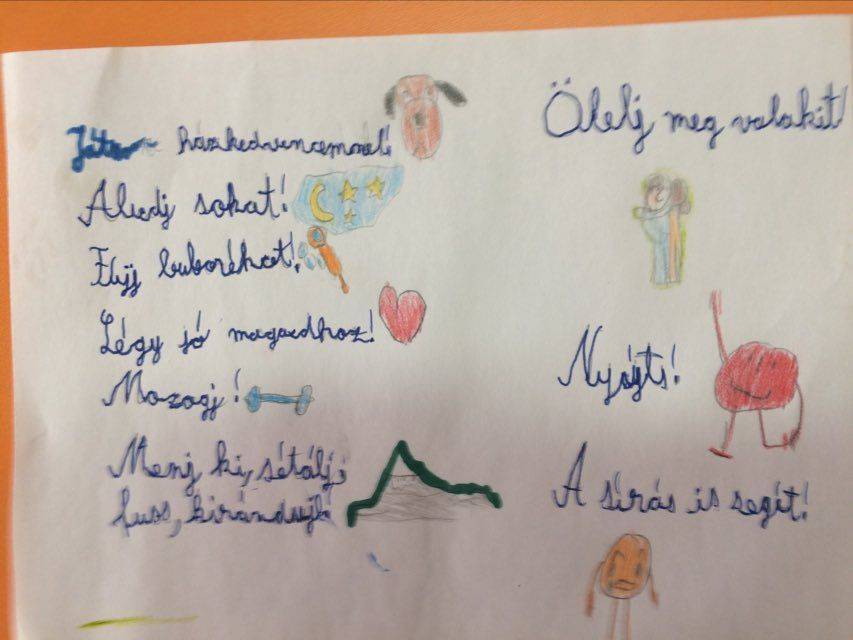 házkedvencemmel!
Aludj sokat!
Fújj buborékot!
Légy jó magadhoz!
Mozogj!
Menj ki, sétálj,
fuss, kirándulj!
Ölelj meg valakit!
Nyújts!
A sírás is segít!